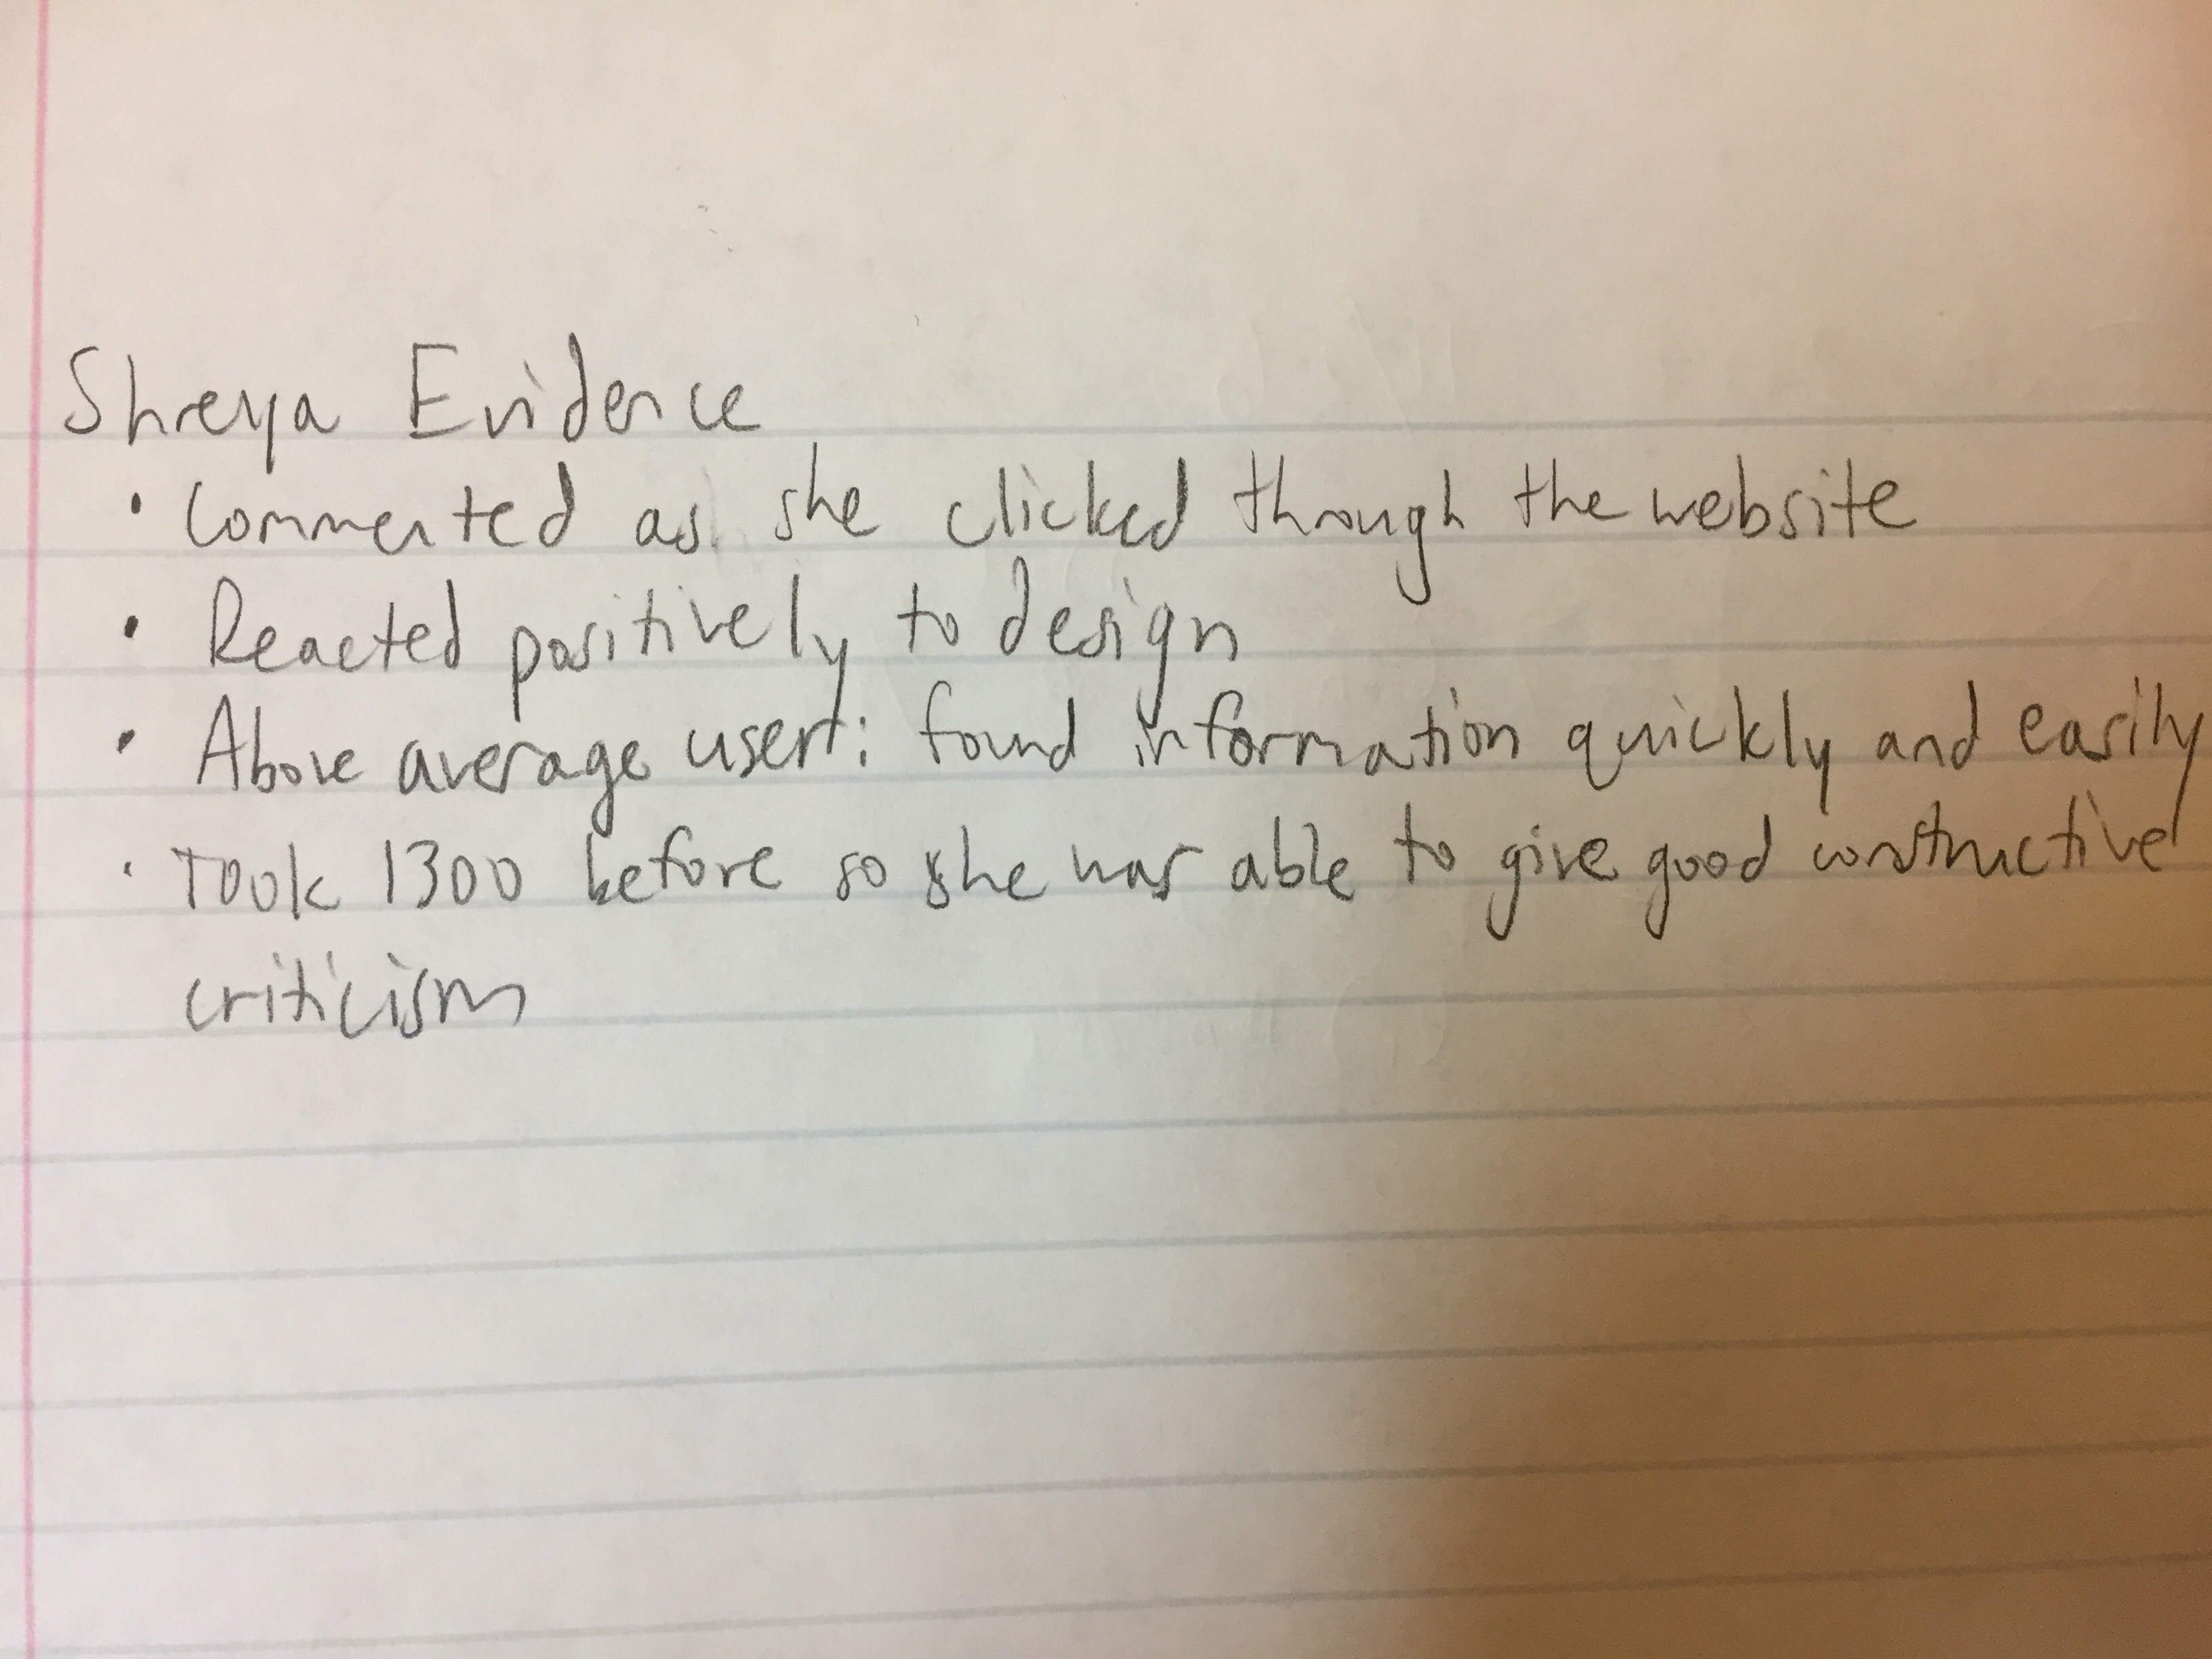 Shreya Evidence
• Commented as she clicked through the website
• Reacted positively to design
• Above average user: found information quickly and easily
• Took 1300 before so she was able to give good constructive
criticism